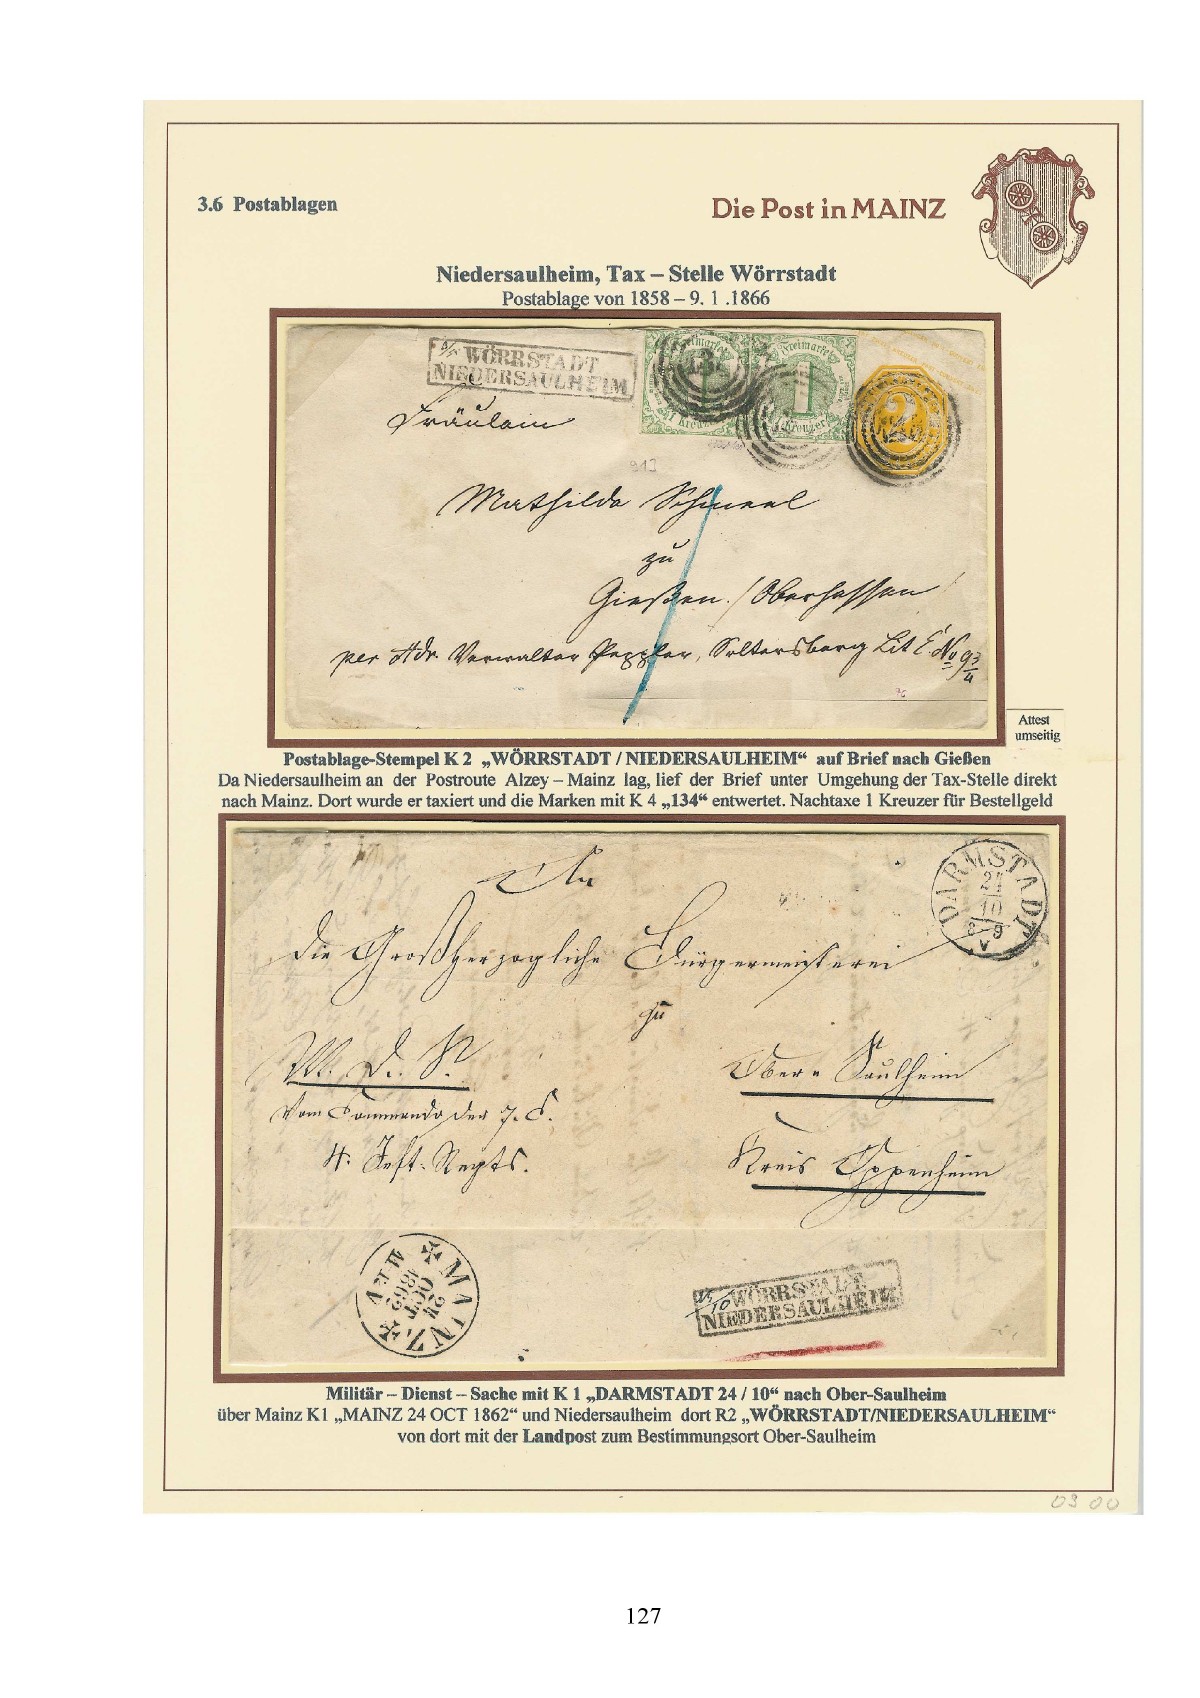 3.6 Postablagen
Die Post in MAINZ
Niedersaulheim, Tax – Stelle Wörrstadt
Postablage von 1858 – 9. 1 .1866
WÖRRSTADT
NIEDERSAULHEIM
Freimarke
Freimarke
1
2
Kreuzer
Kreuzer
Fräulein
913
Mathilde Schmeel
zu
Gießen. / Oberhessen
per Adr. Verwalter Peppler, Seltersberg Lit E. No 93/4
76
Attest
umseitig
Postablage-Stempel K 2 „WÖRRSTADT / NIEDERSAULHEIM“ auf Brief nach Gießen
Da Niedersaulheim an der Postroute Alzey – Mainz lag, lief der Brief unter Umgehung der Tax-Stelle direkt
nach Mainz. Dort wurde er taxiert und die Marken mit K 4 „134“ entwertet. Nachtaxe 1 Kreuzer für Bestellgeld
DARMSTADT
24
10
8-9
V
An
die Großherzogliche Bürgermeisterei
zu
M. D. S.
Ober-Saulheim
vom Commando der 7. C.
4. Inft. Regts.
Kreis Oppenheim
MAINZ
24
OCT
1862
WÖRRSTADT
NIEDERSAULHEIM
25/10
Militär – Dienst – Sache mit K 1 „DARMSTADT 24 / 10“ nach Ober-Saulheim
über Mainz K1 „MAINZ 24 OCT 1862“ und Niedersaulheim dort R2 „WÖRRSTADT/NIEDERSAULHEIM“
von dort mit der Landpost zum Bestimmungsort Ober-Saulheim
03 00
127